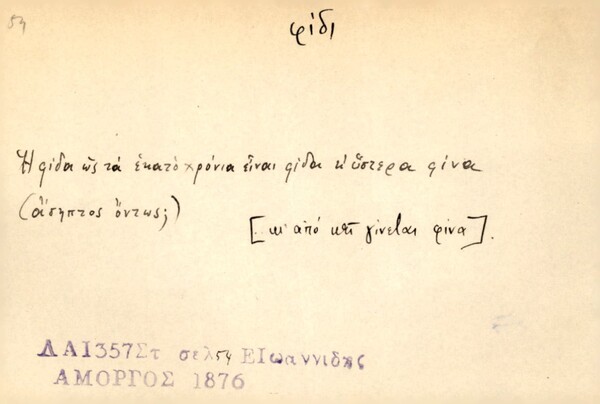 54
φίδι
Ἡ φίδα ὣς τὰ ἑκατὸ χρόνια εἶναι φίδα κ' ὕστερα φίνα
(ἄσηπτος ὄντως;)
[.. κι' ἀπὸ κεῖ γίνεται φίνα].
ΛΑΙ357Στ σελ 54 ΕΙωαννιδης
ΑΜΟΡΓΟΣ 1876